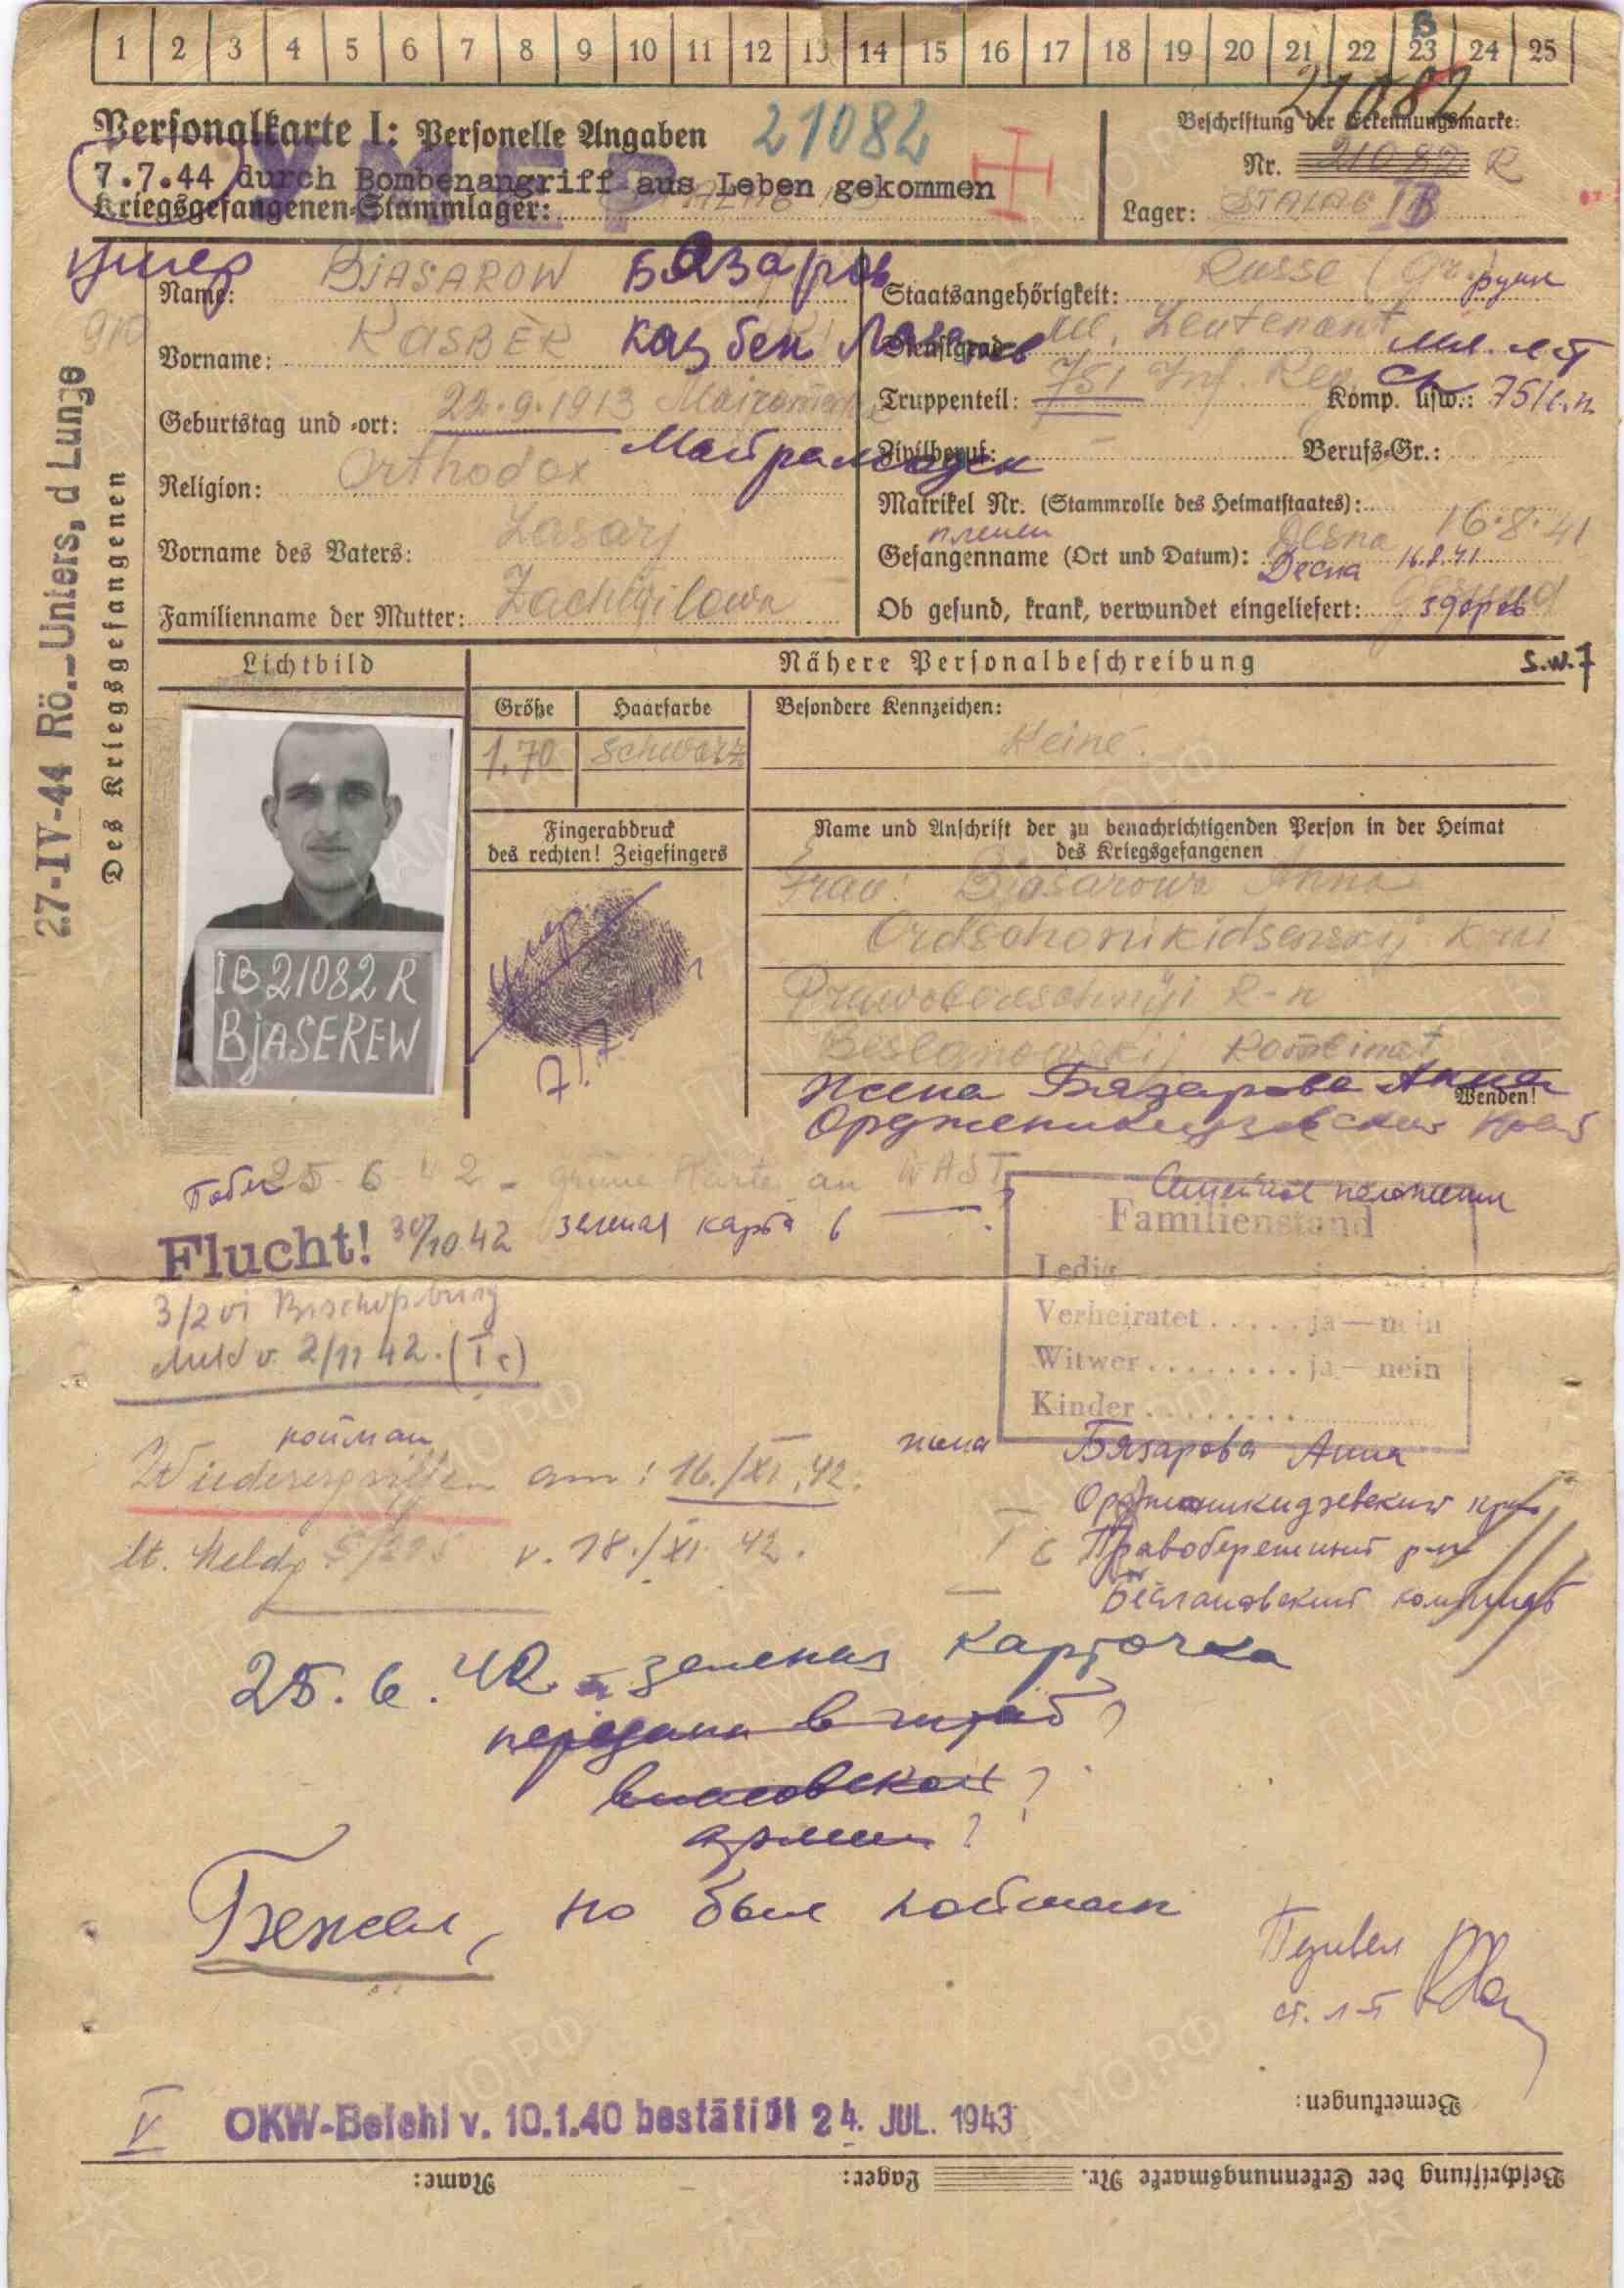 1 2 3 4 5 6 7 8 9 10 11 12 13 14 15 16 17 18 19 20 21 22 23 24 25
Personalkarte I: Personelle Angaben
21082
21082
Beschriftung der Erkennungsmarke:
Nr. 21082 R
Lager: STALAG IB
УМЕР
7.7.44 durch Bombenangriff aus Leben gekommen
Kriegsgefangenen-Stammlager:
умер
Name: BJASAROW Бязаров
Vorname: KASBEK Казбек
Geburtstag und -ort: 22.9.1913
Майрамадаг
Religion: Orthodox
Vorname des Vaters: Lasarj
Familienname der Mutter:
Staatsangehörigkeit: Russe
Dienstgrad: Leutenant мл. л-т
Truppenteil: 751 Inf. Reg. Komp. usw.: 751 с.п.
Zivilberuf: Berufs-Gr.:
Matrikel Nr. (Stammrolle des Heimatstaates):
пленен
Gefangenname (Ort und Datum): Desna 16.8.41
Десна 16.8.41
Ob gesund, krank, verwundet eingeliefert: Gesund
здоров
27-IV-44 Rö.-Unters. d Lunge
Des Kriegsgefangenen
Lichtbild
Nähere Personalbeschreibung
S.W.7
Größe Haarfarbe
1.70 schwarz
Besondere Kennzeichen:
Keine.
Fingerabdruck
des rechten! Zeigefingers
умер
Name und Anschrift der zu benachrichtigenden Person in der Heimat
des Kriegsgefangenen
Frau: Bjasarowa Anna
Ordschonikidsenskij krai
R-n
Beslanowskij Kombinat
IB 21082 R
BJASEREW
жена Бязарова Анна
Орджоникидзевский край
Wenden!
25.6.42 - grüne Karte an WAST
Flucht! 30/10 42 зеленая карта в
Семейное положение
Familienstand
Ledig
Verheiratet ..... ja — nein
Witwer ........ ja — nein
Kinder ........
Bischofsburg
v. 2/11 42. (Ic)
пойман
Wiederergriffen am: 16./XI.42.
lt. Meldg. v. 18./XI. 42.
жена Бязарова Анна
Орджоникидзевский край
Правобережный р-н
Беслановский комбинат
25.6.42 - зеленая карточка
передана в штаб?
власовской?
армии?
Бежал, но был пойман
ст. л-т
V
OKW-Befehl v. 10.1.40 bestätigt 24. JUL. 1943
Bemerkungen:
Beschriftung der Erkennungsmarke Nr. Lager: Name: